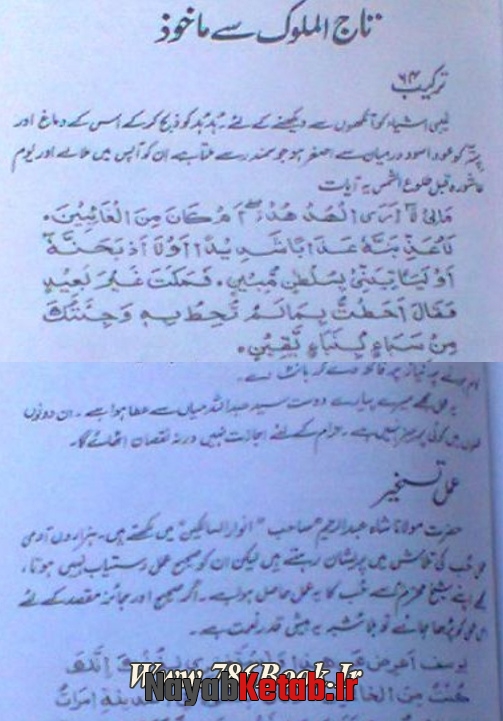 تاج الملوک سے ماخوذ
ترکیب ۶۴
غیبی اشیاء کو آنکھوں سے دیکھنے کے لئے۔ ہدہد کو ذبح کرکے اس کے دماغ اور
پتہ کو عود اسود درمیان سے اصغر ہو جو سمندر سے ملتا ہے ان کو آپس میں ملائے اور یوم
عاشورہ قبل طلوع الشمس یہ آیات
مَالِیَ لَا اَرَی الْهُدْهُدَ اَمْ كَانَ مِنَ الْغَائِبِیْنَ۔
لَاُعَذِّبَنَّهٗ عَذَابًا شَدِیْدًا اَوْ لَاَ اذْبَحَنَّهٗ
اَوْ لَیَاْتِیَنِّیْ بِسُلْطٰنٍ مُّبِیْنٍ۔ فَمَكَثَ غَیْرَ بَعِیْدٍ
فَقَالَ اَحَطْتُّ بِمَا لَمْ تُحِطْ بِهٖ وَ جِئْتُكَ
مِنْ سَبَاءٍ بِنَبَاءٍ یَّقِیْنٍ۔
یہ عمل مجھے میرے پیارے دوست سید عبداللہ میاں سے عطا ہوا ہے۔ ان دونوں
میں کوئی پرہیز نہیں ہے۔ حرام کے لئے اجازت نہیں ورنہ نقصان اٹھائے گا۔
عمل تسخیر
حضرت مولانا شاہ عبدالرحیم صاحب "انوار السالکین" میں لکھتے ہیں۔ ہزاروں آدمی
حُب کی تلاش میں پریشان رہتے ہیں لیکن ان کو صحیح عمل دستیاب نہیں ہوتا،
اپنے شیخ محترم سے حُب کا یہ عمل حاصل ہوا ہے۔ اگر صحیح اور جائز مقصد کے لئے
کو پڑھا جائے تو بلا شبہ یہ بیش قدر نعمت ہے۔
یوسف اعرض عن هذا
Www.786Book.Ir
كنت من
NayabKetab.Ir